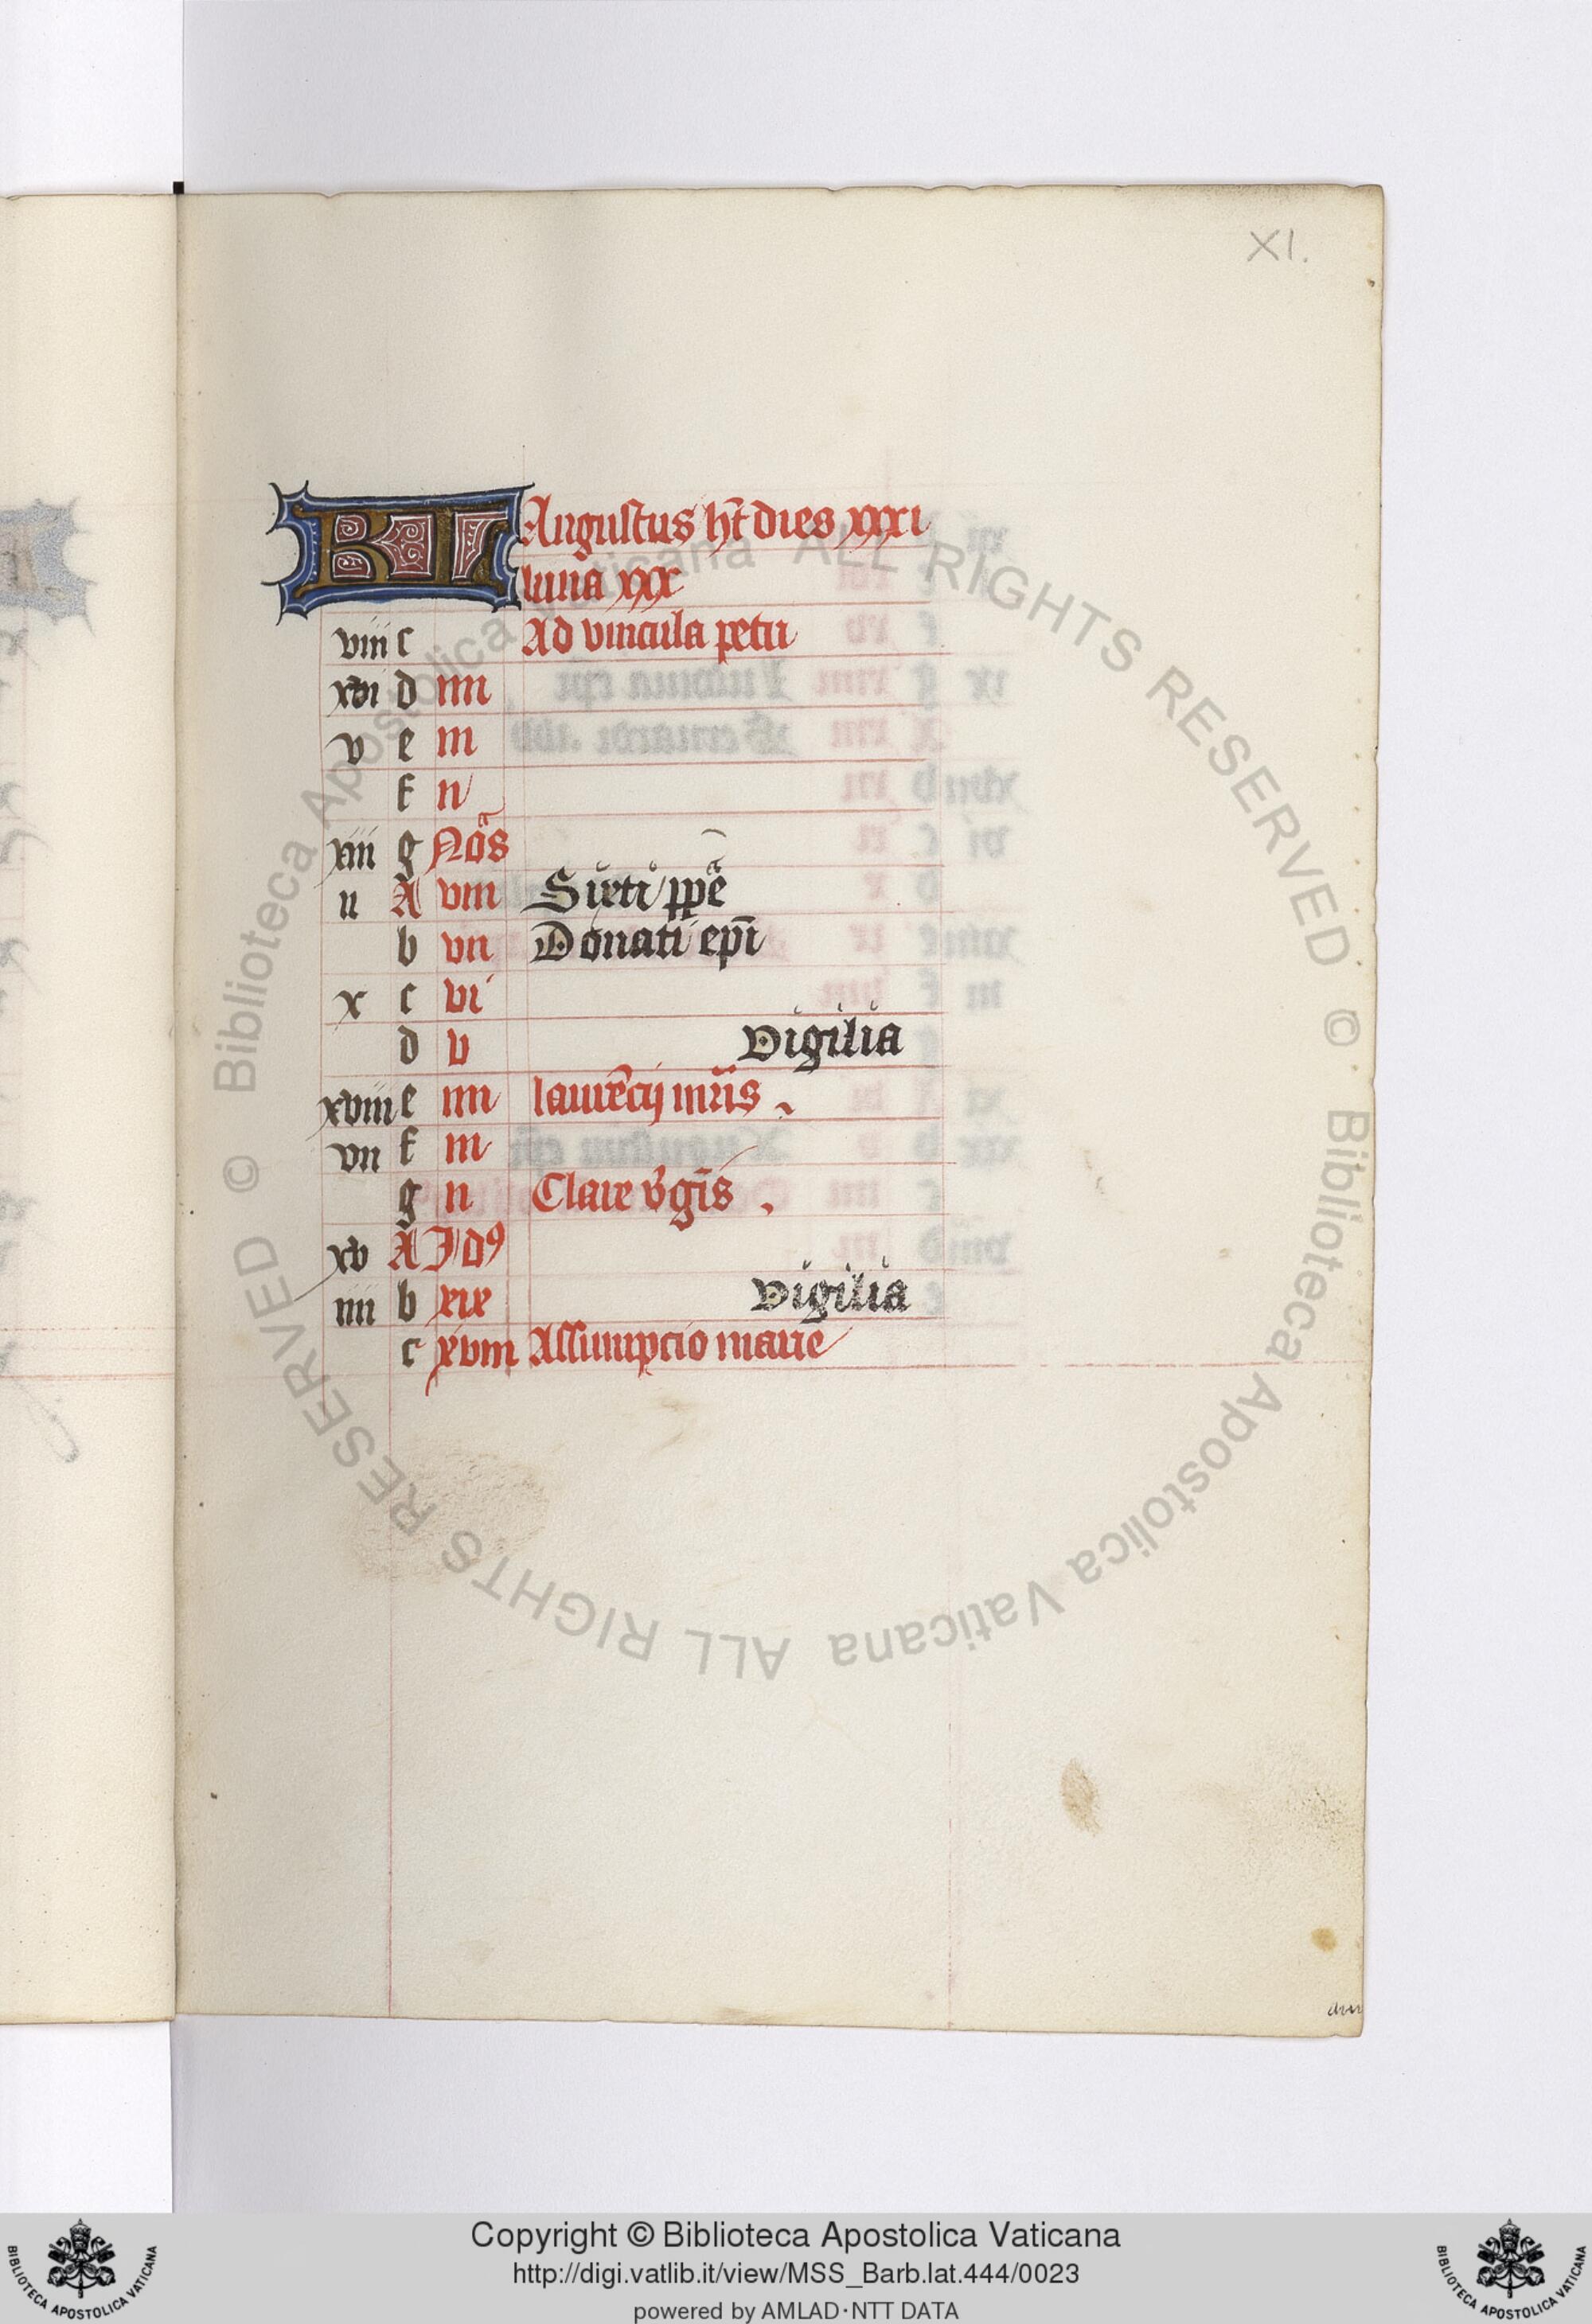 XI.
KL Augustus ht̄ dies xxxi
luna xxx
viii c Ad vincula petri
xvi d iiii
v e iii
f ii
xiii g Noās
ii A viii Sixti ppē
b vii Donati epī
x c vi
d v vigilia
xviii e iiii laurēcij mr̄is
vii f iii
g ii Clare v̾gīs
xv A Idꝰ
iiii b xix vigilia
c xviii Assumpcio marie
© Biblioteca Apostolica Vaticana ALL RIGHTS RESERVED © Biblioteca Apostolica Vaticana ALL RIGHTS RESERVED
Copyright © Biblioteca Apostolica Vaticana
http://digi.vatlib.it/view/MSS_Barb.lat.444/0023
powered by AMLAD·NTT DATA
BIBLIOTECA APOSTOLICA VATICANA
BIBLIOTECA APOSTOLICA VATICANA